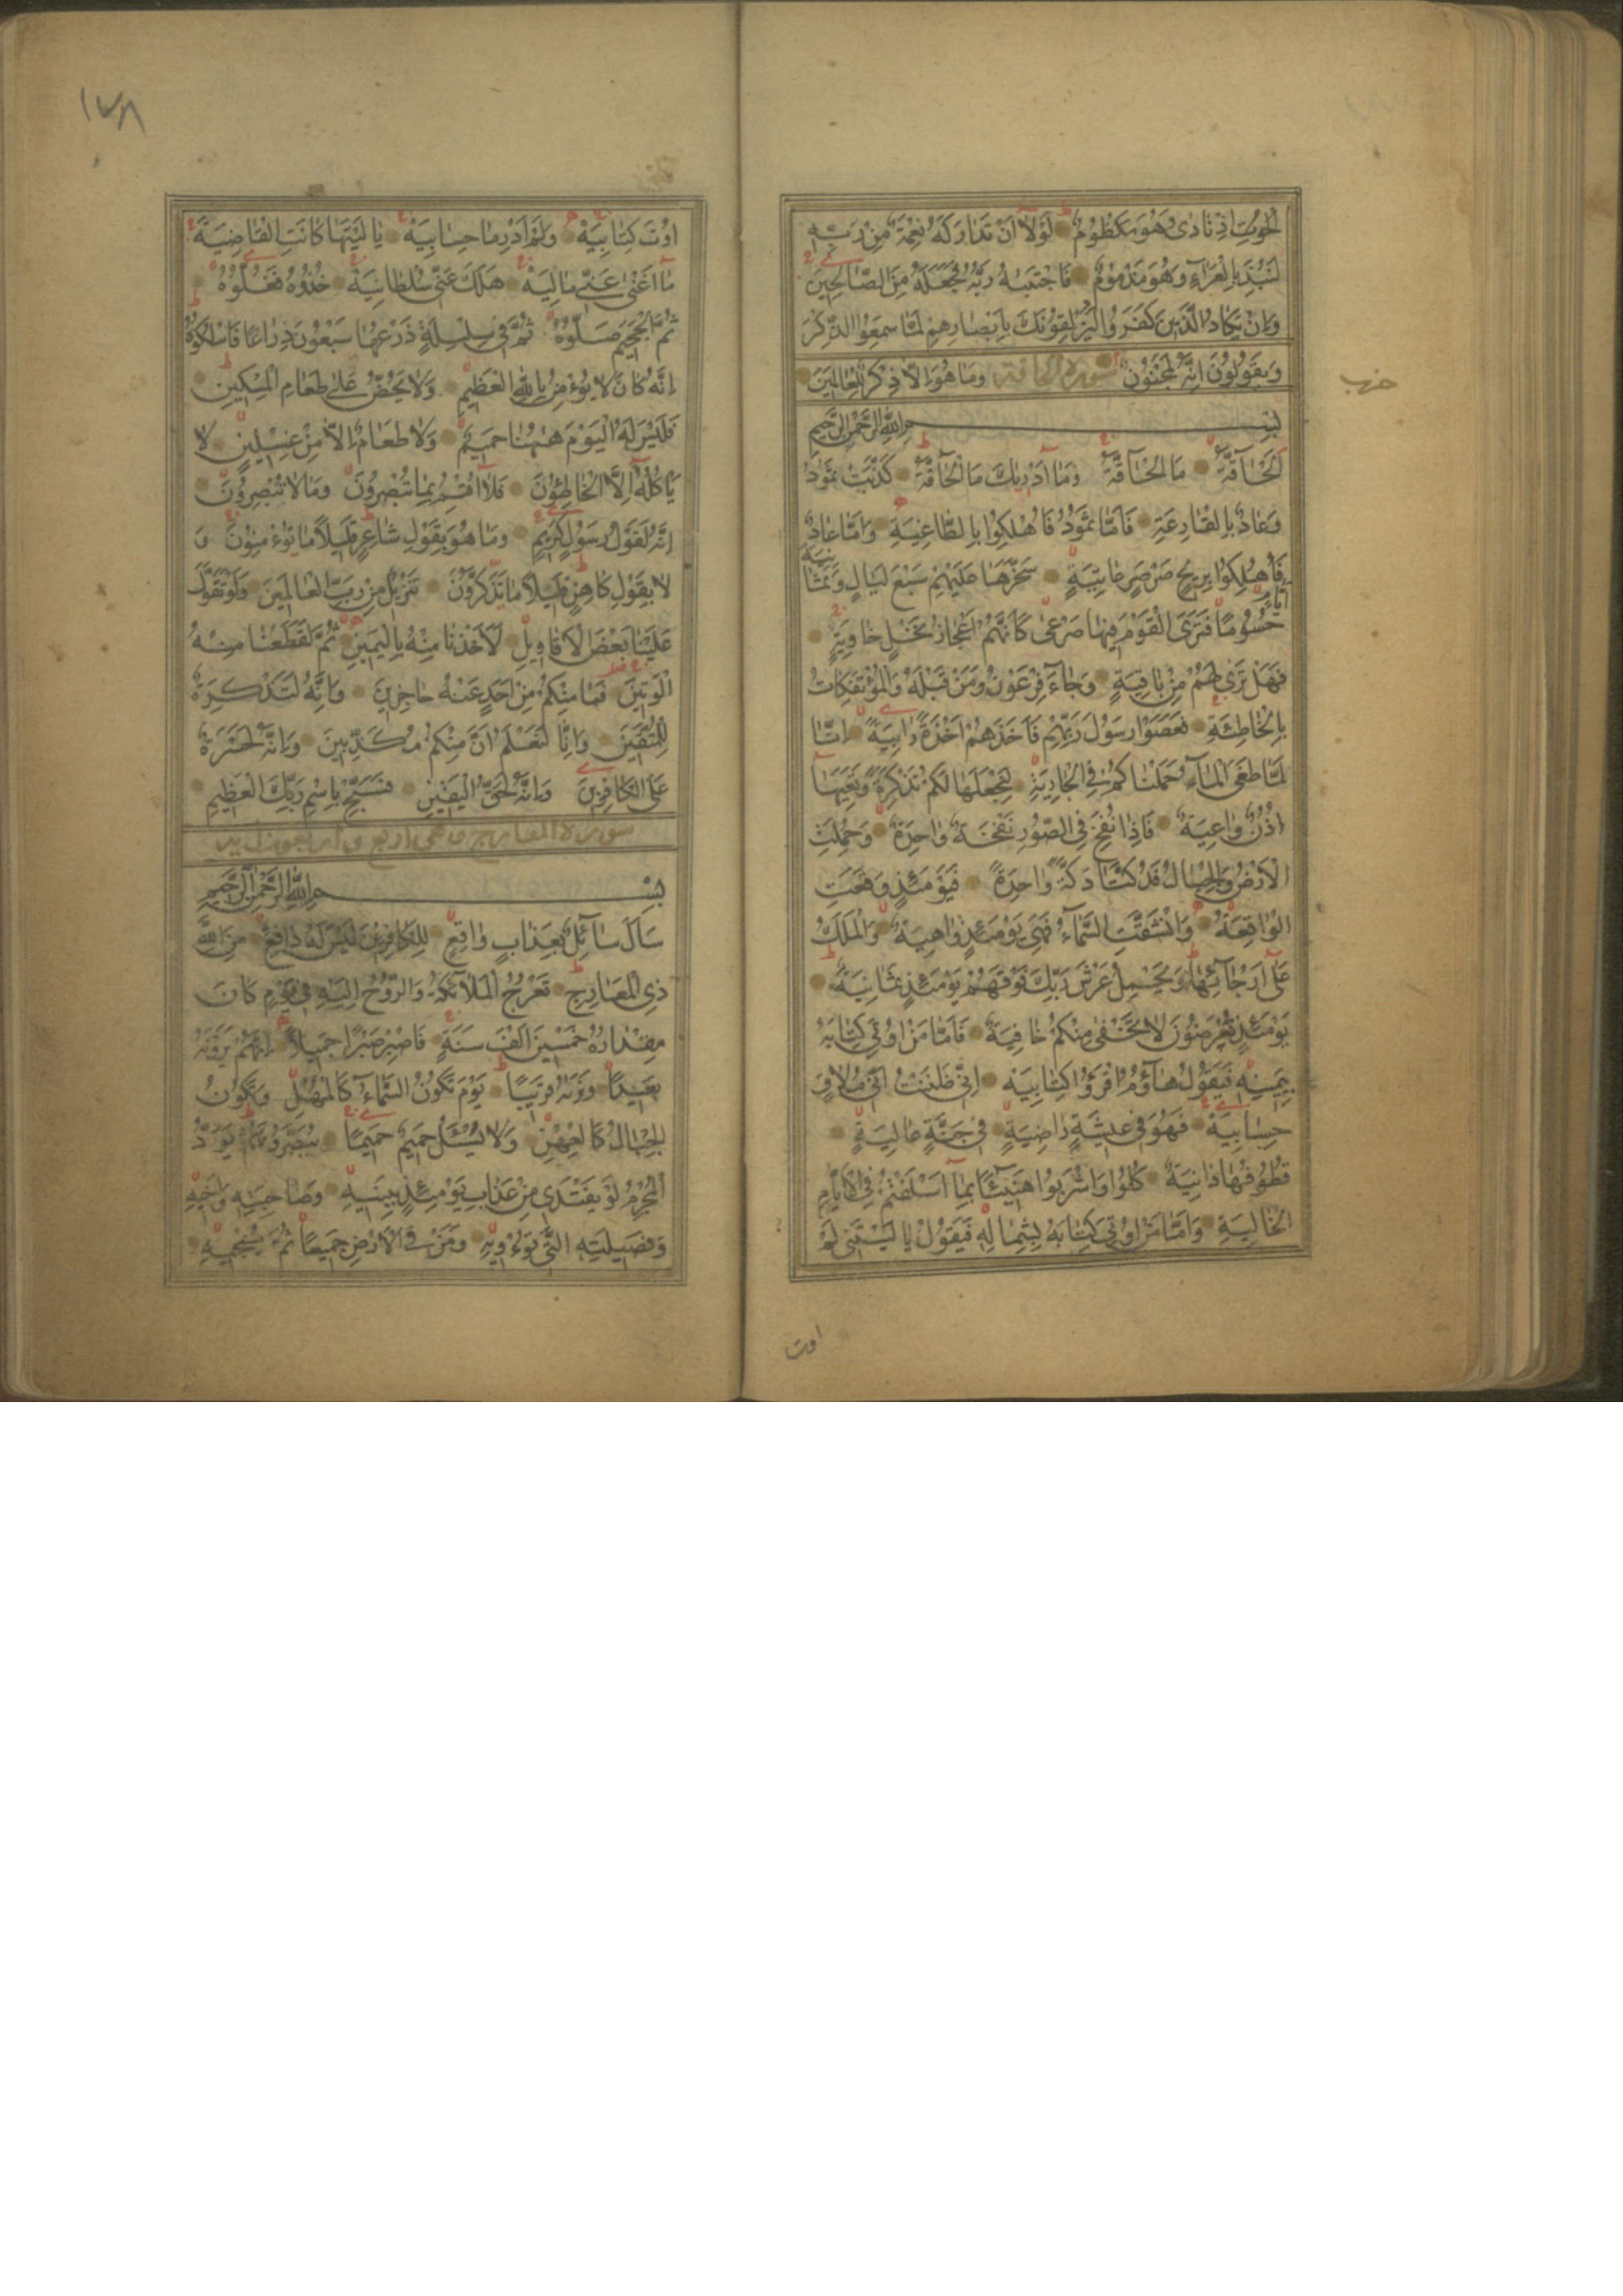 الْحُوتِ اِذْ نَادٰى وَهُوَ مَكْظُومٌ لَوْلَا اَنْ تَدَارَكَهُ نِعْمَةٌ مِنْ رَبِّهِ
لَنُبِذَ بِالْعَرَاءِ وَهُوَ مَذْمُومٌ فَاجْتَبٰيهُ رَبُّهُ فَجَعَلَهُ مِنَ الصَّالِحِينَ
وَاِنْ يَكَادُ الَّذِينَ كَفَرُوا لَيُزْلِقُونَكَ بِاَبْصَارِهِمْ لَمَّا سَمِعُوا الذِّكْرَ
وَيَقُولُونَ اِنَّهُ لَمَجْنُونٌ سورة الحاقة وَمَا هُوَ اِلَّا ذِكْرٌ لِلْعَالَمِينَ
حزب
بِسْمِ اللّٰهِ الرَّحْمٰنِ الرَّحِيمِ
اَلْحَاقَّةُ مَا الْحَاقَّةُ وَمَا اَدْرٰيكَ مَا الْحَاقَّةُ كَذَّبَتْ ثَمُودُ
وَعَادٌ بِالْقَارِعَةِ فَاَمَّا ثَمُودُ فَاُهْلِكُوا بِالطَّاغِيَةِ وَاَمَّا عَادٌ
فَاُهْلِكُوا بِرِيحٍ صَرْصَرٍ عَاتِيَةٍ سَخَّرَهَا عَلَيْهِمْ سَبْعَ لَيَالٍ وَثَمَانِيَةَ
اَيَّامٍ
حُسُومًا فَتَرَى الْقَوْمَ فِيهَا صَرْعٰى كَاَنَّهُمْ اَعْجَازُ نَخْلٍ خَاوِيَةٍ
فَهَلْ تَرٰى لَهُمْ مِنْ بَاقِيَةٍ وَجَاءَ فِرْعَوْنُ وَمَنْ قَبْلَهُ وَالْمُؤْتَفِكَاتُ
بِالْخَاطِئَةِ فَعَصَوْا رَسُولَ رَبِّهِمْ فَاَخَذَهُمْ اَخْذَةً رَابِيَةً اِنَّا
لَمَّا طَغَى الْمَاءُ حَمَلْنَاكُمْ فِي الْجَارِيَةِ لِنَجْعَلَهَا لَكُمْ تَذْكِرَةً وَتَعِيَهَا
اُذُنٌ وَاعِيَةٌ فَاِذَا نُفِخَ فِي الصُّورِ نَفْخَةٌ وَاحِدَةٌ وَحُمِلَتِ
الْاَرْضُ وَالْجِبَالُ فَدُكَّتَا دَكَّةً وَاحِدَةً فَيَوْمَئِذٍ وَقَعَتِ
الْوَاقِعَةُ وَانْشَقَّتِ السَّمَاءُ فَهِيَ يَوْمَئِذٍ وَاهِيَةٌ وَالْمَلَكُ
عَلٰى اَرْجَائِهَا وَيَحْمِلُ عَرْشَ رَبِّكَ فَوْقَهُمْ يَوْمَئِذٍ ثَمَانِيَةٌ
يَوْمَئِذٍ تُعْرَضُونَ لَا تَخْفٰى مِنْكُمْ خَافِيَةٌ فَاَمَّا مَنْ اُوتِيَ كِتَابَهُ
بِيَمِينِهِ فَيَقُولُ هَاؤُمُ اقْرَؤُا كِتَابِيَهْ اِنِّي ظَنَنْتُ اَنِّي مُلَاقٍ
حِسَابِيَهْ فَهُوَ فِي عِيشَةٍ رَاضِيَةٍ فِي جَنَّةٍ عَالِيَةٍ
قُطُوفُهَا دَانِيَةٌ كُلُوا وَاشْرَبُوا هَنِيئًا بِمَا اَسْلَفْتُمْ فِي الْاَيَّامِ
الْخَالِيَةِ وَاَمَّا مَنْ اُوتِيَ كِتَابَهُ بِشِمَالِهِ فَيَقُولُ يَا لَيْتَنِي لَمْ
اوت
١٧٨
اُوتَ كِتَابِيَهْ وَلَمْ اَدْرِ مَا حِسَابِيَهْ يَا لَيْتَهَا كَانَتِ الْقَاضِيَةَ
مَا اَغْنٰى عَنِّي مَالِيَهْ هَلَكَ عَنِّي سُلْطَانِيَهْ خُذُوهُ فَغُلُّوهُ
ثُمَّ الْجَحِيمَ صَلُّوهُ ثُمَّ فِي سِلْسِلَةٍ ذَرْعُهَا سَبْعُونَ ذِرَاعًا فَاسْلُكُوهُ
اِنَّهُ كَانَ لَا يُؤْمِنُ بِاللّٰهِ الْعَظِيمِ وَلَا يَحُضُّ عَلٰى طَعَامِ الْمِسْكِينِ
فَلَيْسَ لَهُ الْيَوْمَ هٰهُنَا حَمِيمٌ وَلَا طَعَامٌ اِلَّا مِنْ غِسْلِينٍ لَا
يَاْكُلُهُ اِلَّا الْخَاطِئُونَ فَلَا اُقْسِمُ بِمَا تُبْصِرُونَ وَمَا لَا تُبْصِرُونَ
اِنَّهُ لَقَوْلُ رَسُولٍ كَرِيمٍ وَمَا هُوَ بِقَوْلِ شَاعِرٍ قَلِيلًا مَا تُؤْمِنُونَ وَ
لَا بِقَوْلِ كَاهِنٍ قَلِيلًا مَا تَذَكَّرُونَ تَنْزِيلٌ مِنْ رَبِّ الْعَالَمِينَ وَلَوْ تَقَوَّلَ
عَلَيْنَا بَعْضَ الْاَقَاوِيلِ لَاَخَذْنَا مِنْهُ بِالْيَمِينِ ثُمَّ لَقَطَعْنَا مِنْهُ
الْوَتِينَ فَمَا مِنْكُمْ مِنْ اَحَدٍ عَنْهُ حَاجِزِينَ وَاِنَّهُ لَتَذْكِرَةٌ
لِلْمُتَّقِينَ وَاِنَّا لَنَعْلَمُ اَنَّ مِنْكُمْ مُكَذِّبِينَ وَاِنَّهُ لَحَسْرَةٌ
عَلَى الْكَافِرِينَ وَاِنَّهُ لَحَقُّ الْيَقِينِ فَسَبِّحْ بِاسْمِ رَبِّكَ الْعَظِيمِ
سورة المعارج وهي اربع واربعون اية
بِسْمِ اللّٰهِ الرَّحْمٰنِ الرَّحِيمِ
سَاَلَ سَائِلٌ بِعَذَابٍ وَاقِعٍ لِلْكَافِرِينَ لَيْسَ لَهُ دَافِعٌ مِنَ اللّٰهِ
ذِي الْمَعَارِجِ تَعْرُجُ الْمَلَائِكَةُ وَالرُّوحُ اِلَيْهِ فِي يَوْمٍ كَانَ
مِقْدَارُهُ خَمْسِينَ اَلْفَ سَنَةٍ فَاصْبِرْ صَبْرًا جَمِيلًا اِنَّهُمْ يَرَوْنَهُ
بَعِيدًا وَنَرٰيهُ قَرِيبًا يَوْمَ تَكُونُ السَّمَاءُ كَالْمُهْلِ وَتَكُونُ
الْجِبَالُ كَالْعِهْنِ وَلَا يَسْئَلُ حَمِيمٌ حَمِيمًا يُبَصَّرُونَهُمْ يَوَدُّ
الْمُجْرِمُ لَوْ يَفْتَدِي مِنْ عَذَابِ يَوْمِئِذٍ بِبَنِيهِ وَصَاحِبَتِهِ وَاَخِيهِ
وَفَصِيلَتِهِ الَّتِي تُؤْوِيهِ وَمَنْ فِي الْاَرْضِ جَمِيعًا ثُمَّ يُنْجِيهِ